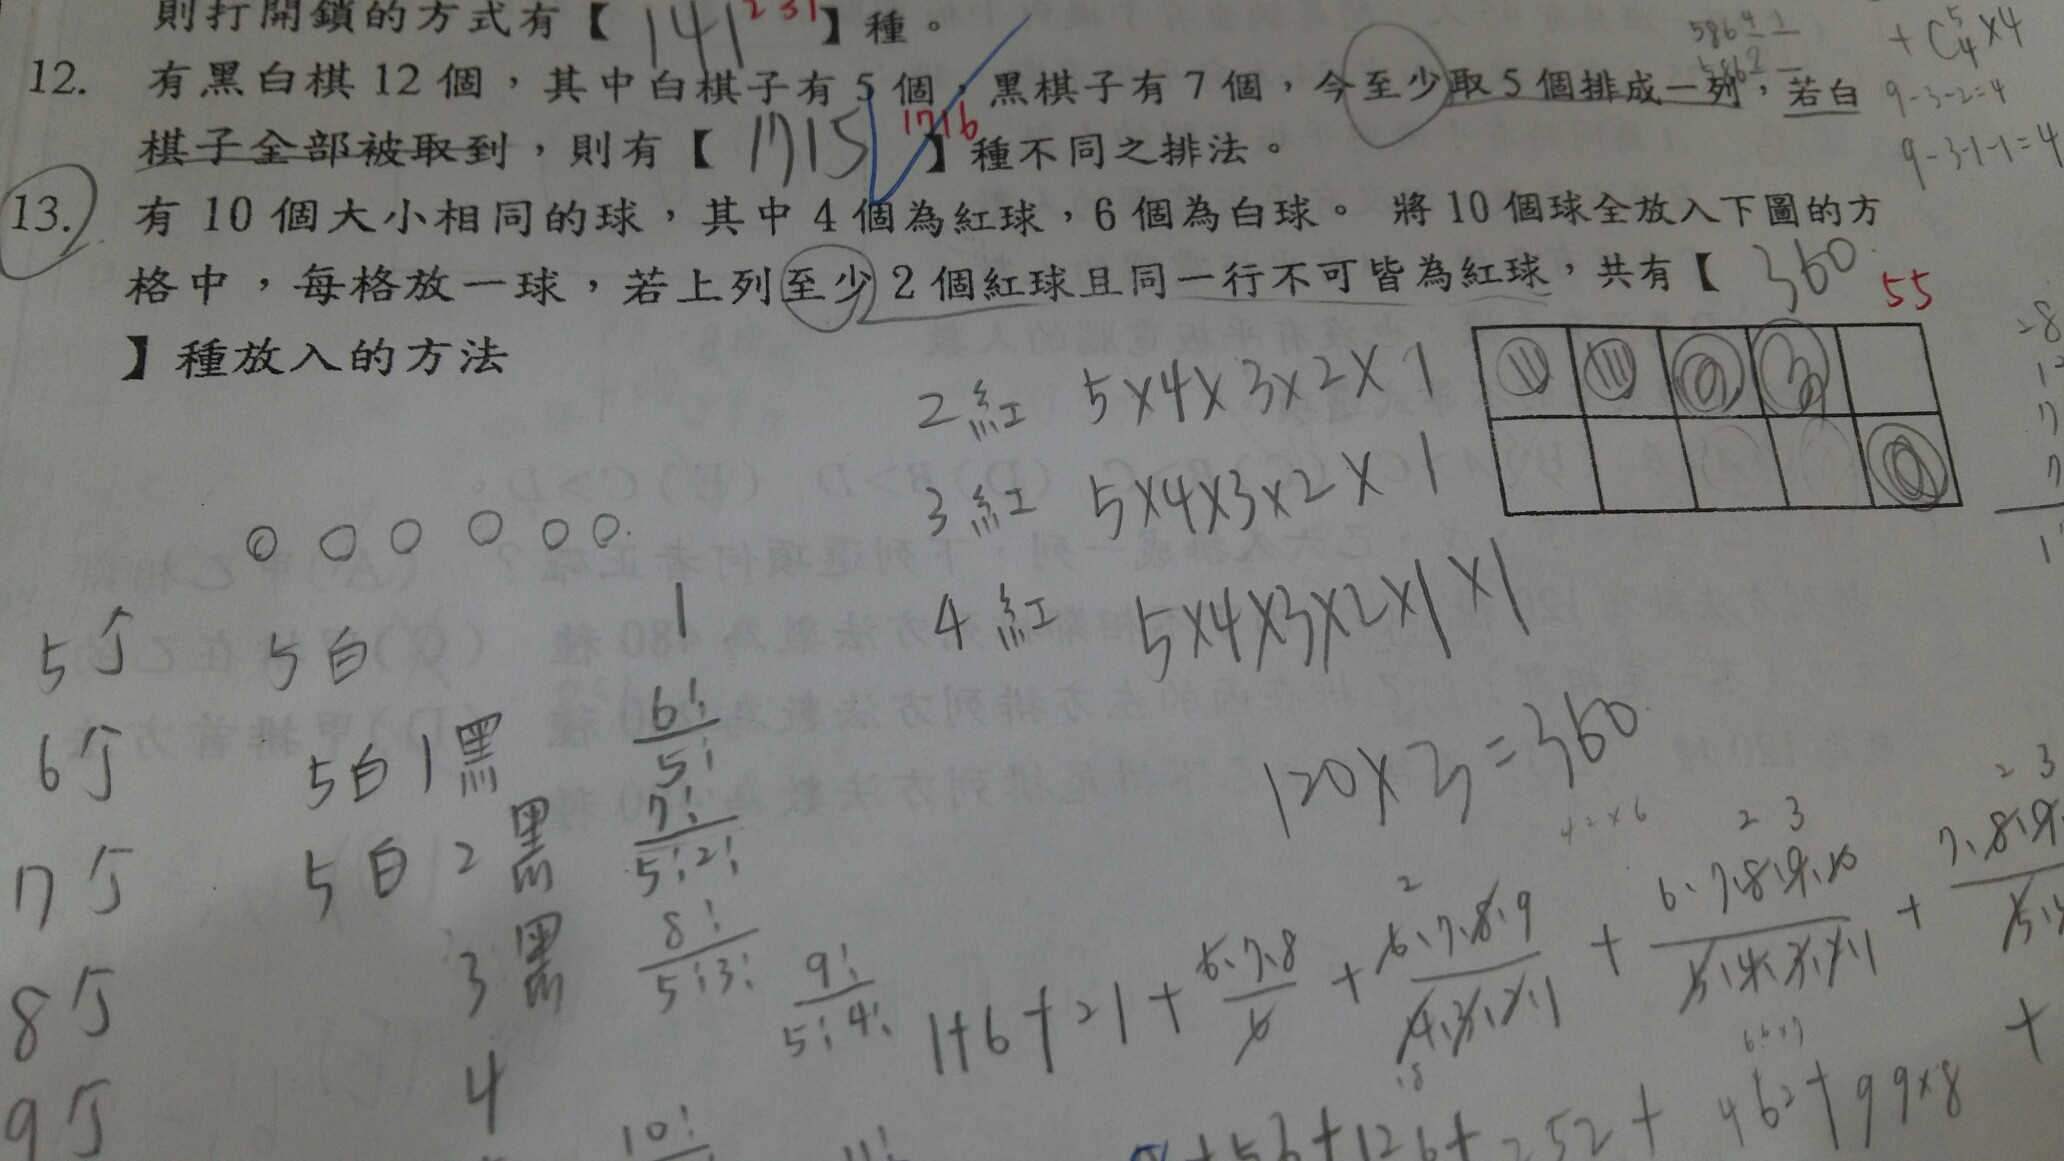 則打開鎖的方式有【 141 231 】種。
12. 有黑白棋 12 個，其中白棋子有 5 個，黑棋子有 7 個，今至少取 5 個排成一列，若白
棋子全部被取到，則有【 1715 1716 】種不同之排法。
13. 有 10 個大小相同的球，其中 4 個為紅球，6 個為白球。 將 10 個球全放入下圖的方
格中，每格放一球，若上列至少 2 個紅球且同一行不可皆為紅球，共有【 360 55
】種放入的方法
+ C⁵₄ × 4
9-3-2=4
9-3-1-1=4
2紅 5×4×3×2×1
3紅 5×4×3×2×1
4紅 5×4×3×2×1×1
120×3=360
5个 5白 1
6个 5白1黑 6!/5!
7个 5白2黑 7!/5!2!
8个 3黑 8!/5!3! 9!/5!4!
9个 4
10! 11!
1+6+21+ 6.7.8/6 + 6.7.8.9/4.3.2.1 + 6.7.8.9.10/5.4.3.2.1 +
+56+126+252+462+99×8 +